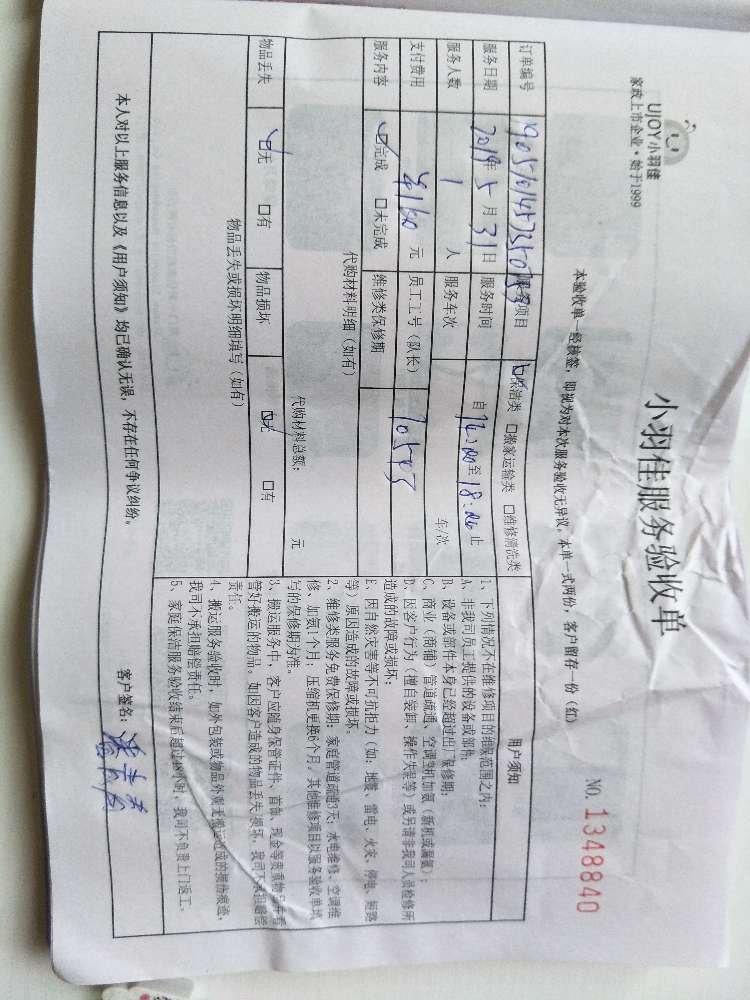 UJOY小羽佳
家政上市企业·始于1999
小羽佳服务验收单
NO. 1348840
本验收单一经核签，即视为对本次服务验收无异议，本单一式两份，客户留存一份（红）
订单编号
服务项目 保洁类 □搬家运输类 □维修清洗类
服务日期 2019年 5 月 31 日 服务时间 自 至 18:00 止
服务人数 1 人 服务车次 车/次
支付费用 元 员工工号（队长） 70545
服务内容 完成 □未完成 维修类保修期
代购材料明细（如有）
代购材料总额： 元
物品丢失 无 □有 物品损坏 无 □有
物品丢失或损坏明细填写（如有）
用户须知
1、下列情况不在维修项目的维保范围之内：
A、非我司员工提供的设备或部件；
B、设备或部件本身已经超过出厂保修期；
C、商业（商铺）管道疏通、空调整机加氨（新机或漏氨）；
D、因客户行为（擅自装卸、操作失误等）或另请非我司人员检修所
造成的故障或损坏；
E、因自然灾害等不可抗拒力（如：地震、雷电、火灾、停电、短路
等）原因造成的故障或损坏。
2、维修类服务免费保修期：家庭管道疏通3天；水电维修、空调维
修、加氨1个月；压缩机更换6个月，其他维修项目以服务验收单填
写的保修期为准。
3、搬运服务中，客户应随身保管证件、首饰、现金等贵重物品并看
管好搬运的物品，如因客户造成的物品丢失损坏，我司不承担赔偿
责任。
4、搬运服务验收时，如外包装或物品外观无搬运造成的损伤痕迹，
我司不承担赔偿责任。
5、家庭保洁服务验收结束后超过 小时，我司不负责上门返工。
本人对以上服务信息以及《用户须知》均已确认无误，不存在任何争议纠纷。
客户签名：